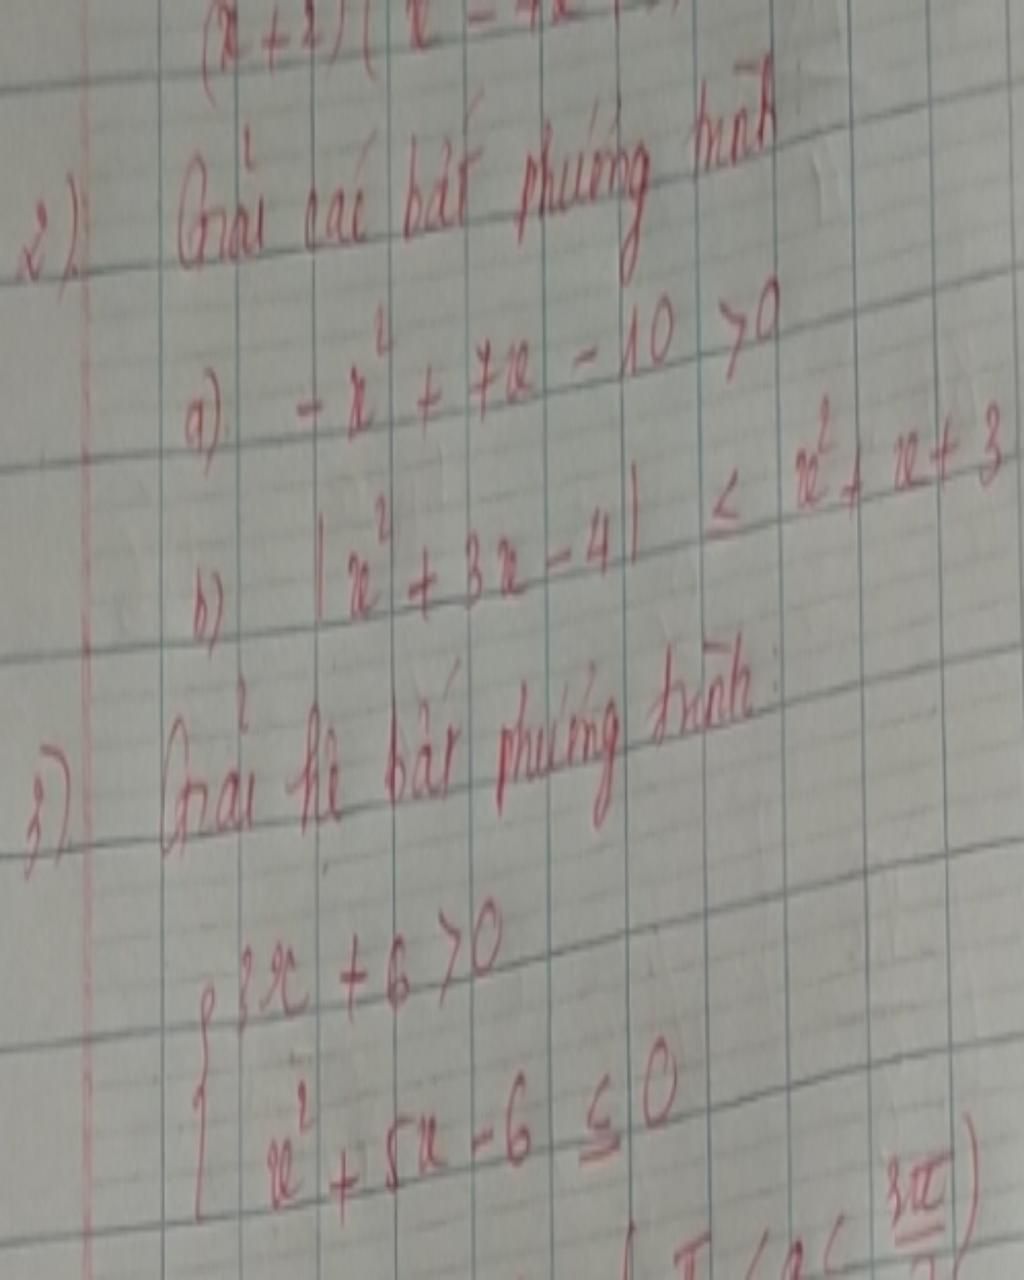 2) Giải các bất phương trình
a) -x² + 7x - 10 > 0
b) |x² + 3x - 4| ≤ x² + x + 3
3) Giải hệ bất phương trình:
{ 3x + 6 > 0
x² + 5x - 6 ≤ 0
3π